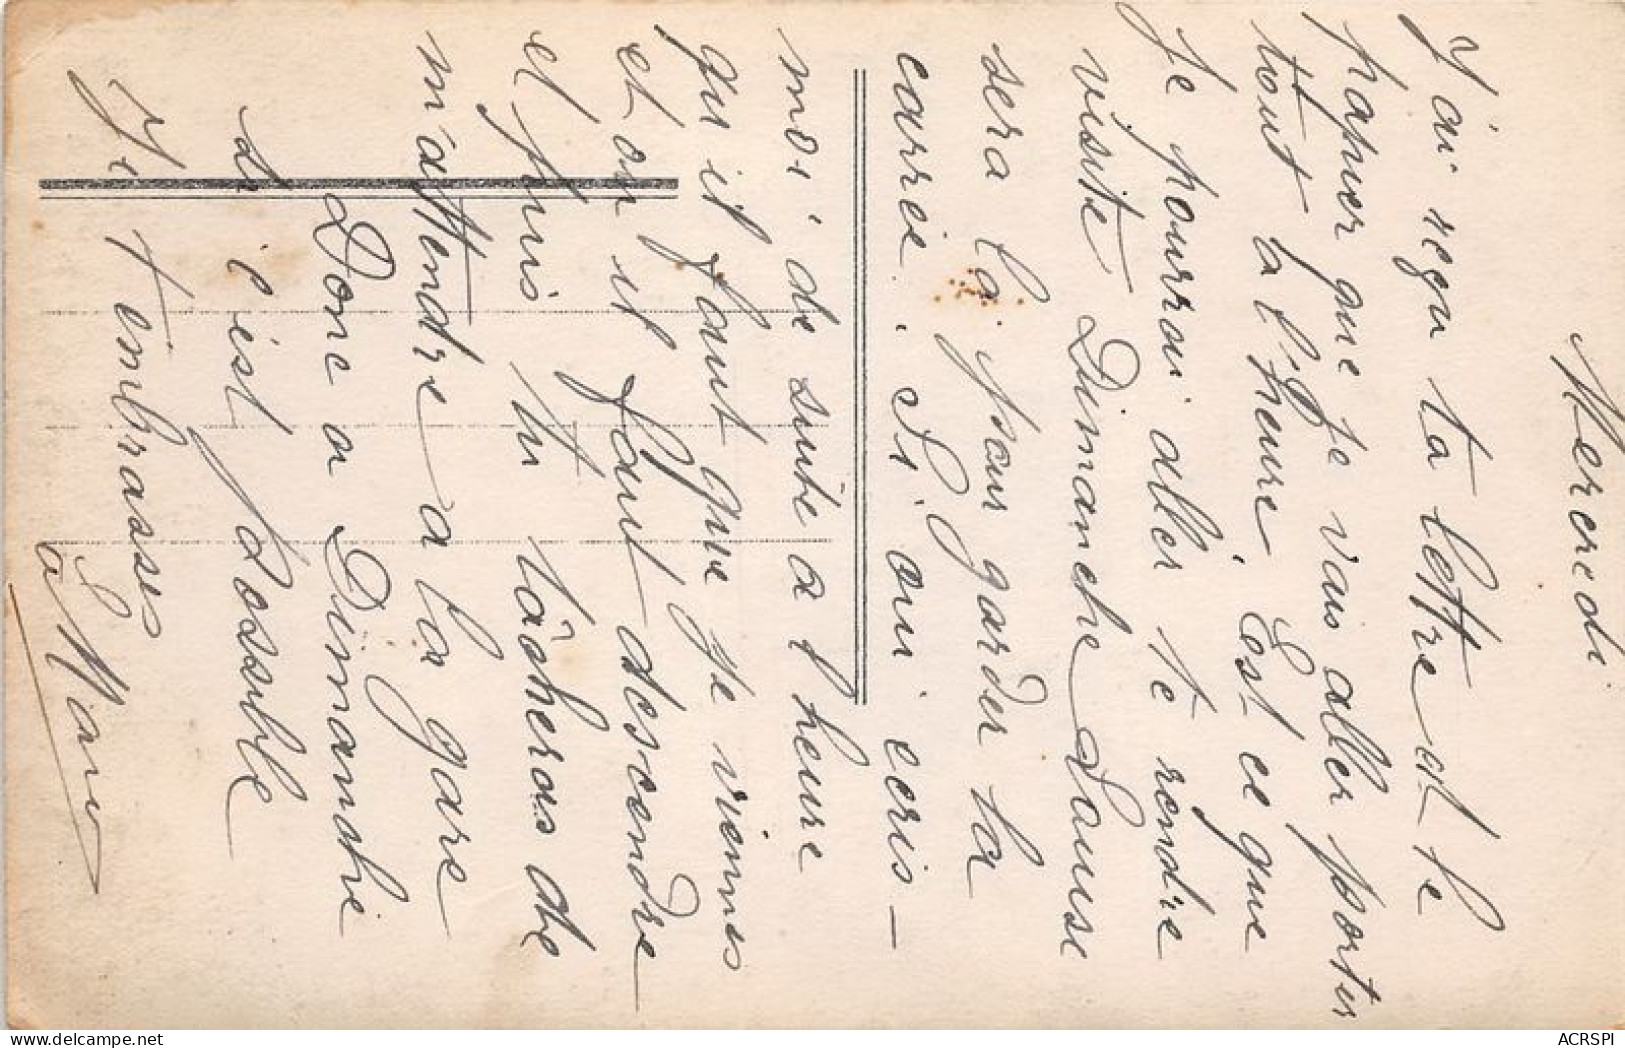 Mercredi
J'ai reçu ta lettre et le
papier que je vais aller porter
tout a l'heure Est ce que
Je pourrai aller te rendre
visite Dimanche Louise
sera la pour garder la
carrie. Si oui ecris -
moi de suite a l'heure
qu il faut que je viennes
et on il faut descendre
et puis tu tâcheras de
m'attendre a la gare
Donc a Dimanche
si c'est possible
Je t embrasses
ACRSPI